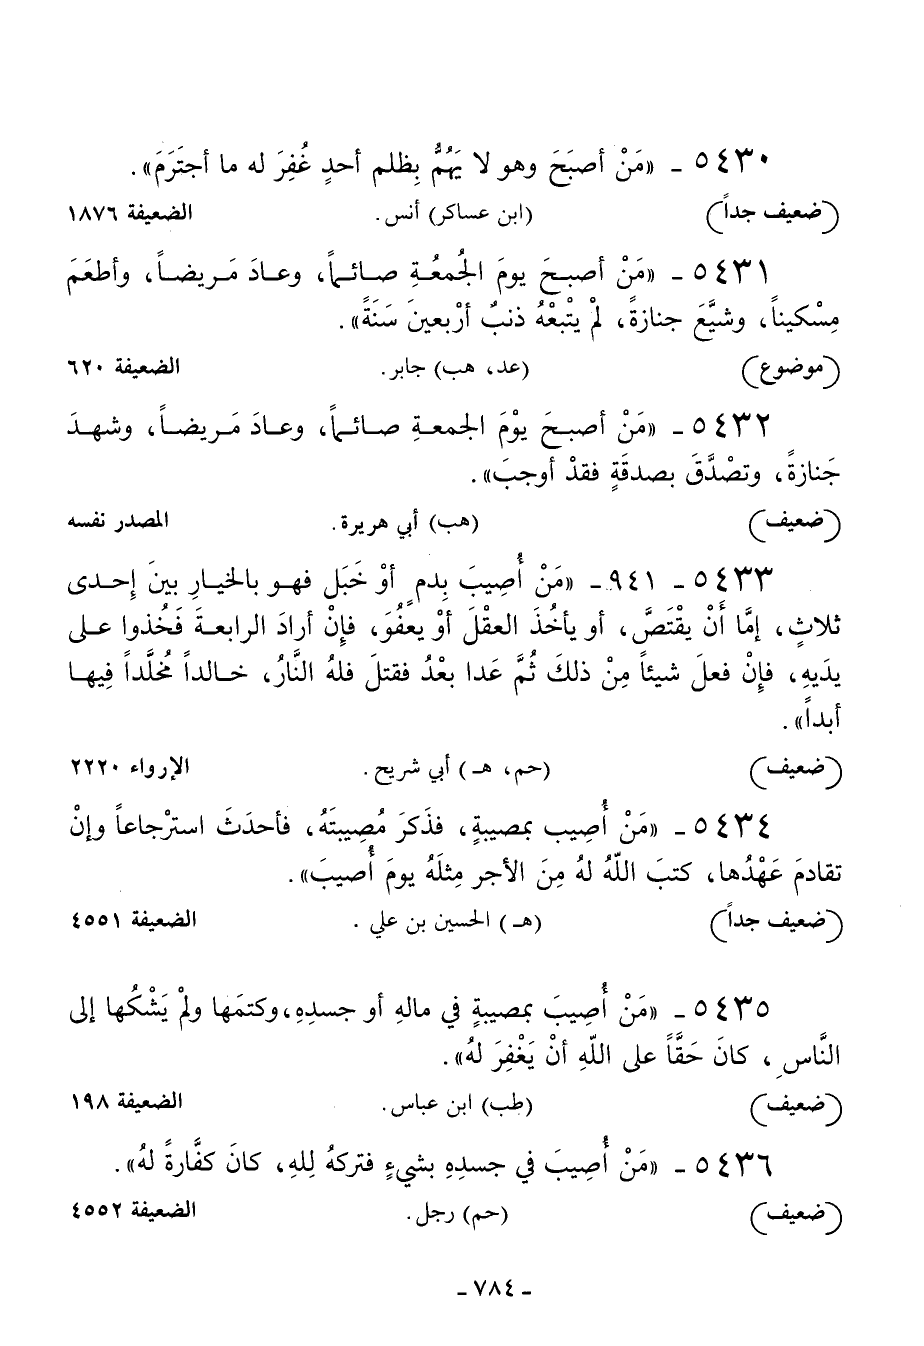 ٥٤٣٠ ـ «مَنْ أصبَحَ وهو لا يَهُمُّ بِظلم أحدٍ غُفِرَ له ما أجتَرَمَ».
(ضعيف جداً) (ابن عساكر) أنس. الضعيفة ١٨٧٦
٥٤٣١ ـ «مَنْ أصبحَ يومَ الجُمعُةِ صائماً، وعادَ مَريضاً، وأطعَمَ
مِسْكيناً، وشيَّعَ جنازةً، لمْ يتْبعْهُ ذنبٌ أرْبعينَ سَنَةً».
(موضوع) (عد، هب) جابر. الضعيفة ٦٢٠
٥٤٣٢ ـ «مَنْ أصبحَ يوْمَ الجمعةِ صائماً، وعادَ مَريضاً، وشهدَ
جَنازةً، وتصْدَّقَ بصدقَةٍ فقدْ أوجبَ».
(ضعيف) (هب) أبي هريرة. المصدر نفسه
٥٤٣٣ ـ ٩٤١ ـ «مَنْ أُصِيبَ بِدمٍ أوْ خَبَل فهو بالخيارِ بينَ إحدى
ثلاثٍ، إمَّا أَنْ يقْتَصَّ، أو يأخُذَ العقْلَ أوْ يعفُوَ، فإنْ أرادَ الرابعةَ فَخُذوا على
يدَيهِ، فإِنْ فعلَ شيئاً مِنْ ذلكَ ثُمَّ عَدا بعْدُ فقتلَ فلهُ النَّارُ، خالداً مُخلَّداً فِيها
أبداً».
(ضعيف) (حم، هـ) أبي شريح. الإرواء ٢٢٢٠
٥٤٣٤ ـ «مَنْ أُصِيب بمصيبةٍ، فذَكرَ مُصِيبتَهُ، فأحدَثَ استرْجاعاً وإنْ
تقادمَ عَهْدُها، كتبَ اللّهُ لهُ مِنَ الأجر مِثلَهُ يومَ أُصيبَ».
(ضعيف جداً) (هـ) الحسين بن علي. الضعيفة ٤٥٥١
٥٤٣٥ ـ «مَنْ أُصِيبَ بمصيبةٍ في مالهِ أو جسدِهِ،وكتمَها ولمْ يَشْكُها إلى
النَّاسِ، كانَ حَقَّاً على اللّهِ أنْ يَغْفِرَ لهُ».
(ضعيف) (طب) ابن عباس. الضعيفة ١٩٨
٥٤٣٦ ـ «مَنْ أُصِيبَ في جسدِهِ بشيءٍ فتركهُ لِلهِ، كانَ كفَّارةً لهُ».
(ضعيف) (حم) رجل. الضعيفة ٤٥٥٢
ـ ٧٨٤ ـ